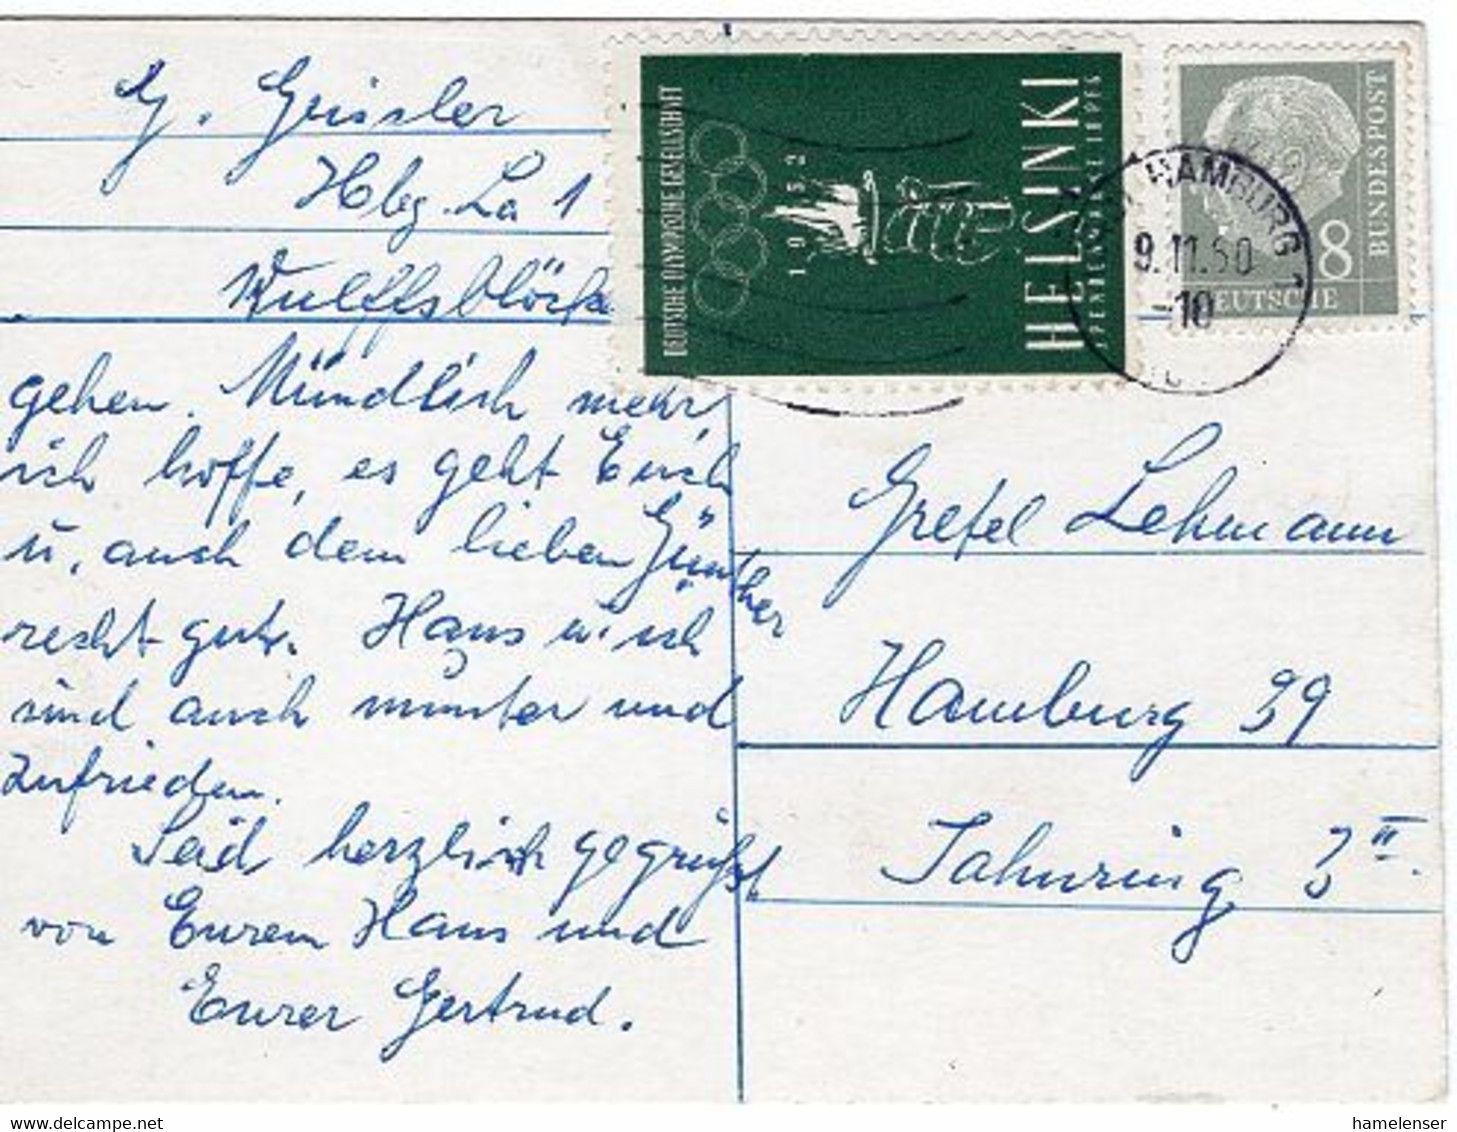 G. Geissler
Hbg. La 1
gehen. Mündlich mehr,
ich hoffe, es geht Euch
u. auch dem lieben Günther
recht gut. Hans u. ich
sind auch munter und
zufrieden.
Seid herzlich gegrüßt
von Eurem Hans und
Eurer Gertrud.
DEUTSCHE OLYMPISCHE GESELLSCHAFT
1952
HELSINKI
HAMBURG
9.11.60
-10
8
DEUTSCHE
BUNDESPOST
Gretel Lehmann
Hamburg 39
Jahnring 3 II.
hamelenser